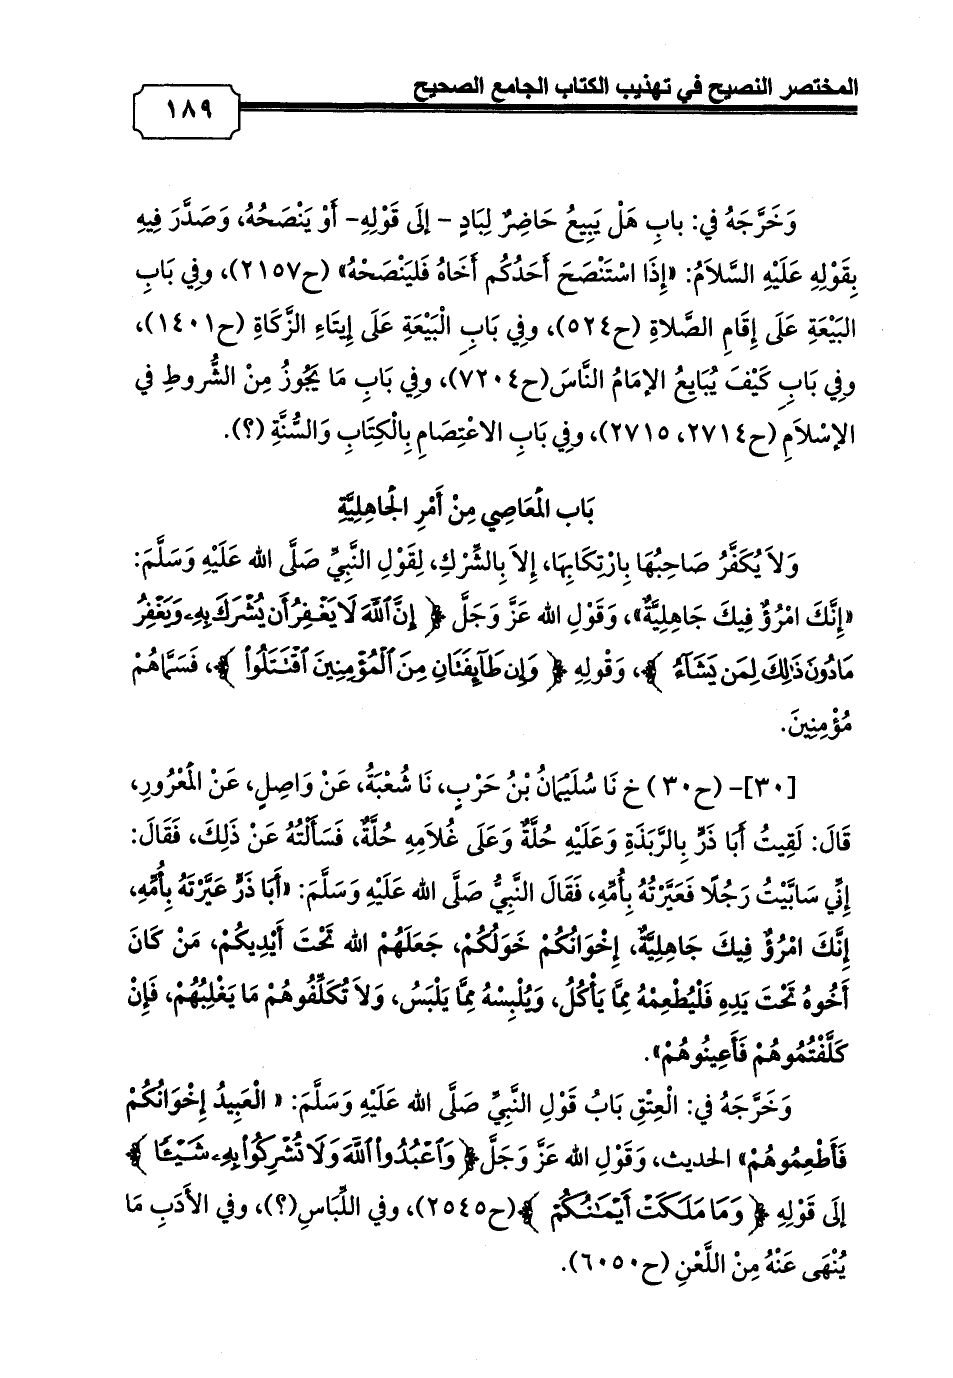 المختصر النصيح في تهذيب الكتاب الجامع الصحيح
١٨٩
وَخَرَّجَهُ فِي: بابِ هَلْ يَبِيعُ حَاضِرٌ لِبَادٍ - إلَى قَوْلِهِ- أَوْ يَنْصَحُهُ، وَصَدَّرَ فِيهِ
بِقَوْلِهِ عَلَيْهِ السَّلامُ: «إِذَا اسْتَنْصَحَ أَحَدُكُم أَخَاهُ فَليَنْصَحْهُ» (ح٢١٥٧)، وفِي بَابِ
البَيْعَةِ عَلَى إقَامِ الصَّلاةِ (ح٥٢٤)، وفِي بَابِ الْبَيْعَةِ عَلَى إيتَاءِ الزَّكَاةِ (ح١٤٠١)،
وفِي بَابِ كَيْفَ يُبَايعُ الإمَامُ النَّاسَ(ح٧٢٠٤)، وفِي بَابِ مَا يَجُوزُ مِنْ الشُّروطِ فِي
الإسْلامِ (ح٢٧١٤، ٢٧١٥)، وفِي بَابِ الاعْتِصَامِ بِالْكِتَابِ وَالسُّنَّةِ (؟).
بَاب المْعَاصِي مِنْ أَمْرِ الجَاهِلِيَّةِ
وَلاَ يُكَفَّرُ صَاحِبُهَا بِارْتِكَابِهَا، إِلاَ بِالشِّرْكِ، لِقَوْلِ النَّبِيِّ صَلَّى الله عَلَيْهِ وَسَلَّمَ:
«إِنَّكَ امْرُؤٌ فِيكَ جَاهِلِيَّةٌ»، وَقَوْلِ الله عَزَّ وَجَلَّ ﴿ إِنَّ ٱللَّهَ لَا يَغْفِرُ أَن يُشْرَكَ بِهِۦ وَيَغْفِرُ
مَا دُونَ ذَٰلِكَ لِمَن يَشَآءُ ﴾، وَقَوْلِهِ ﴿ وَإِن طَآئِفَتَانِ مِنَ ٱلْمُؤْمِنِينَ ٱقْتَتَلُواْ ﴾، فَسَمَّاهُمْ
مُؤْمِنِينَ.
[٣٠]- (ح٣٠) خ نَا سُلَيْمَانُ بْنُ حَرْبٍ، نَا شُعْبَةُ، عَنْ وَاصِلٍ، عَنْ المْعْرُورِ،
قَالَ: لَقِيتُ أَبَا ذَرٍّ بِالرَّبَذَةِ وَعَلَيْهِ حُلَّةٌ وَعَلَى غُلامِهِ حُلَّةٌ، فَسَأَلْتُهُ عَنْ ذَلِكَ، فَقَالَ:
إِنِّي سَابَّيْتُ رَجُلًا فَعَيَّرْتُهُ بِأُمِّهِ، فَقَالَ النَّبِيُّ صَلَّى الله عَلَيْهِ وَسَلَّمَ: «أَبَا ذَرٍّ عَيَّرْتَهُ بِأُمِّهِ،
إِنَّكَ امْرُؤٌ فِيكَ جَاهِلِيَّةٌ، إِخْوَانُكُمْ خَوَلُكُمْ، جَعَلَهُمْ الله تَحْتَ أَيْدِيكُمْ، مَنْ كَانَ
أَخُوهُ تَحْتَ يَدِهِ فَلْيُطْعِمْهُ مِمَّا يَأْكُلُ، وَيُلْبِسْهُ مِمَّا يَلْبَسُ، وَلاَ تُكَلِّفُوهُمْ مَا يَغْلِبُهُمْ، فَإِنْ
كَلَّفْتُمُوهُمْ فَأَعِينُوهُمْ».
وَخَرَّجَهُ فِي: الْعِتْقِ بَابُ قَوْلِ النَّبِيِّ صَلَّى الله عَلَيْهِ وَسَلَّمَ: « الْعَبِيدُ إِخْوَانُكُمْ
فَأَطْعِمُوهُمْ» الحديث، وَقَوْلِ الله عَزَّ وَجَلَّ ﴿ وَٱعْبُدُواْ ٱللَّهَ وَلَا تُشْرِكُواْ بِهِۦ شَيْـًٔا ﴾
إلَى قَوْلِهِ ﴿ وَمَا مَلَكَتْ أَيْمَـٰنُكُمْ ﴾(ح٢٥٤٥)، وفي اللِّبَاسِ(؟)، وفي الأَدَبِ مَا
يُنْهَى عَنْهُ مِنْ اللَّعْنِ (ح٦٠٥٠).